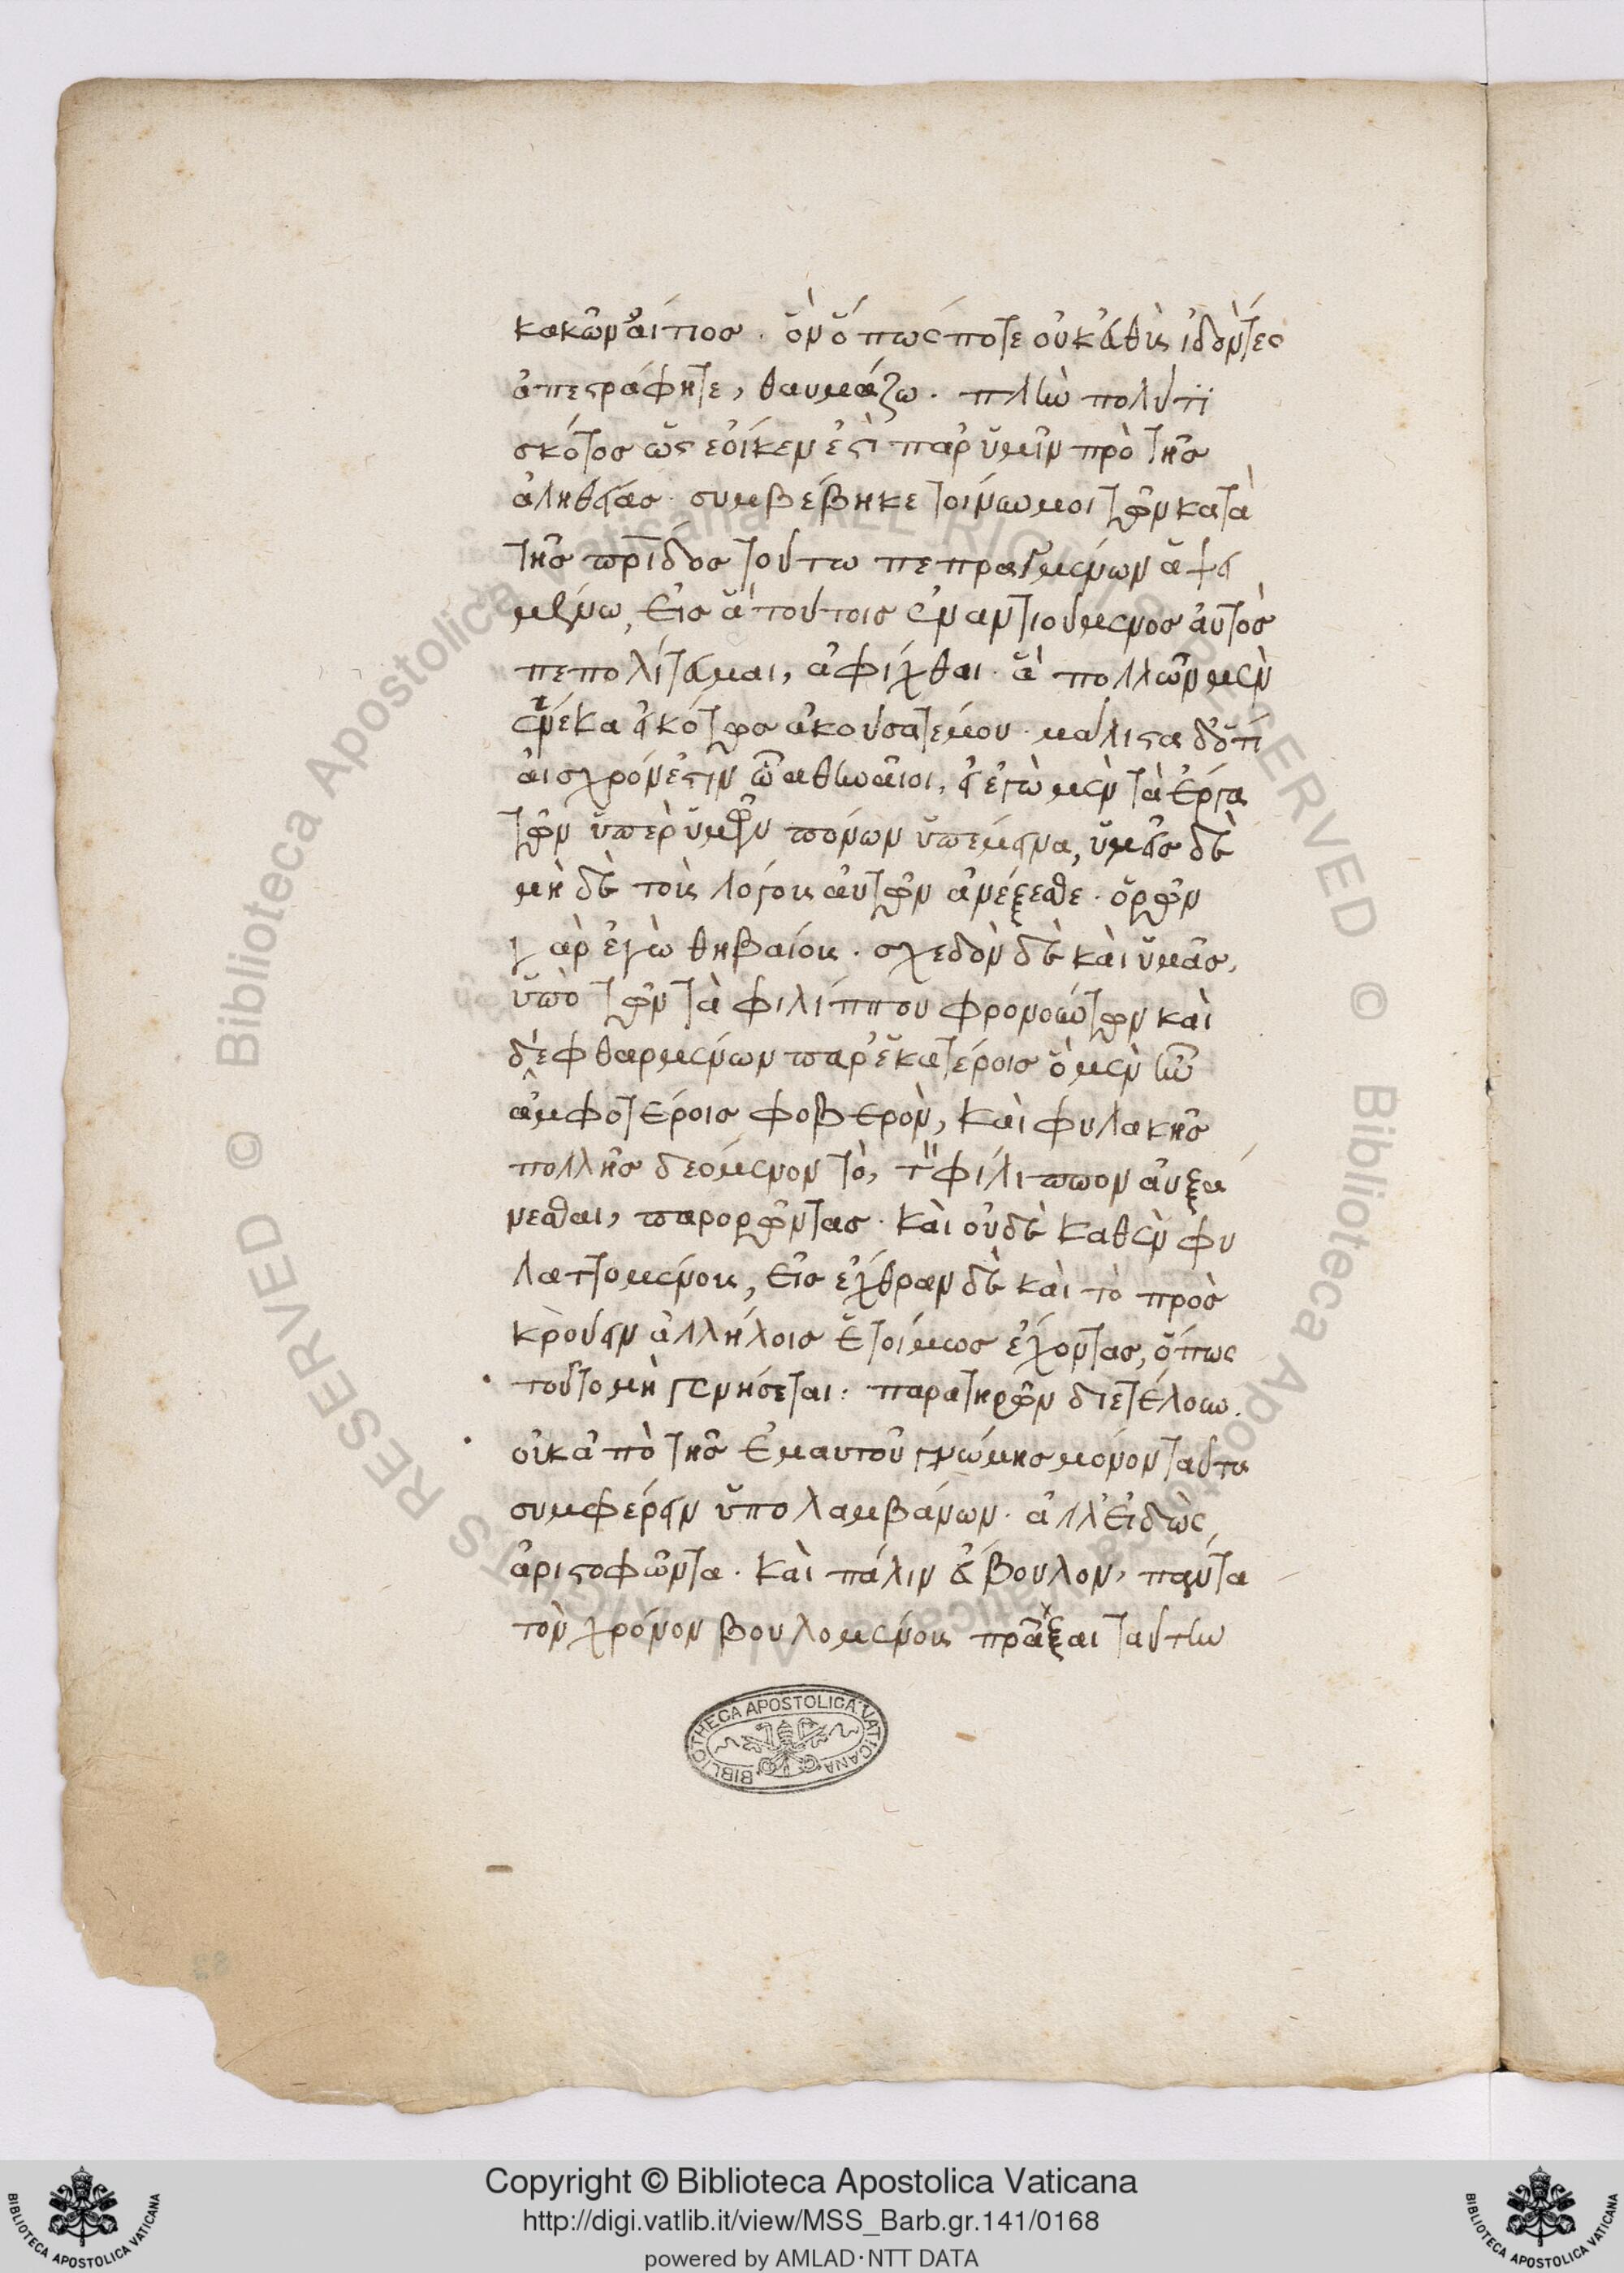 κακῶν αἴτιος. ὃν ὅπως ποτε οὐκ εὐθὺς ἰδόντες
ἀπεστράφητε, θαυμάζω. πλὴν πολύ τι
σκότος ὡς ἔοικεν ἐστὶ παρ' ὑμῖν πρὸ τῆς
ἀληθείας. συμβέβηκε τοίνυν μοι τῶν κατὰ
τῆς πρίδος τούτω πεπραγμένων ἁψα
μένω, εἰς ἃ τούτοις ἐναντιούμενος αὐτὸς
πεπολίτευμαι, ἀφίχθαι. ἃ πολλῶν μὲν
ἕνεκα εἰκότως ἀκούσατέ μου. μάλιστα δ' ὅτι
αἰσχρόν ἐστιν ὦ ἀθηναῖοι, εἰ ἐγὼ μὲν τὰ ἔργα
τῶν ὑπὲρ ὑμῶν πόνων ὑπέμεινα, ὑμεῖς δὲ
μὴ δὲ τοὺς λόγους αὐτῶν ἀνέξεσθε. ὁρῶν
γὰρ ἐγὼ θηβαίους. σχεδὸν δὲ καὶ ὑμᾶς,
ὑπὸ τῶν τὰ φιλίππου φρονούντων καὶ
διεφθαρμένων παρ' ἑκατέροις ὃ μὲν ἦν
ἀμφοτέροις φοβερὸν, καὶ φυλακῆς
πολλῆς δεόμενον τὸ, τὸν φίλιππον αὐξά
νεσθαι, παρορῶντας. καὶ οὐδὲ καθὲν φυ
λαττομένους, εἰς ἔχθραν δὲ καὶ τὸ προς
κρούειν ἀλλήλοις ἑτοίμως ἔχοντας, ὅπως
τοῦτο μὴ γενήσεται: παρατηρῶν διετέλουν.
οὐκ ἀπὸ τῆς ἐμαυτοῦ γνώμης μόνον ταῦτα
συμφέρειν ὑπολαμβάνων. ἀλλ' εἰδὼς
ἀριστοφῶντα. καὶ πάλιν εὔβουλον, πάντα
τὸν χρόνον βουλομένους πρᾶξαι ταύτην
BIBLIOTHECA APOSTOLICA VATICANA
Copyright © Biblioteca Apostolica Vaticana
http://digi.vatlib.it/view/MSS_Barb.gr.141/0168
powered by AMLAD·NTT DATA